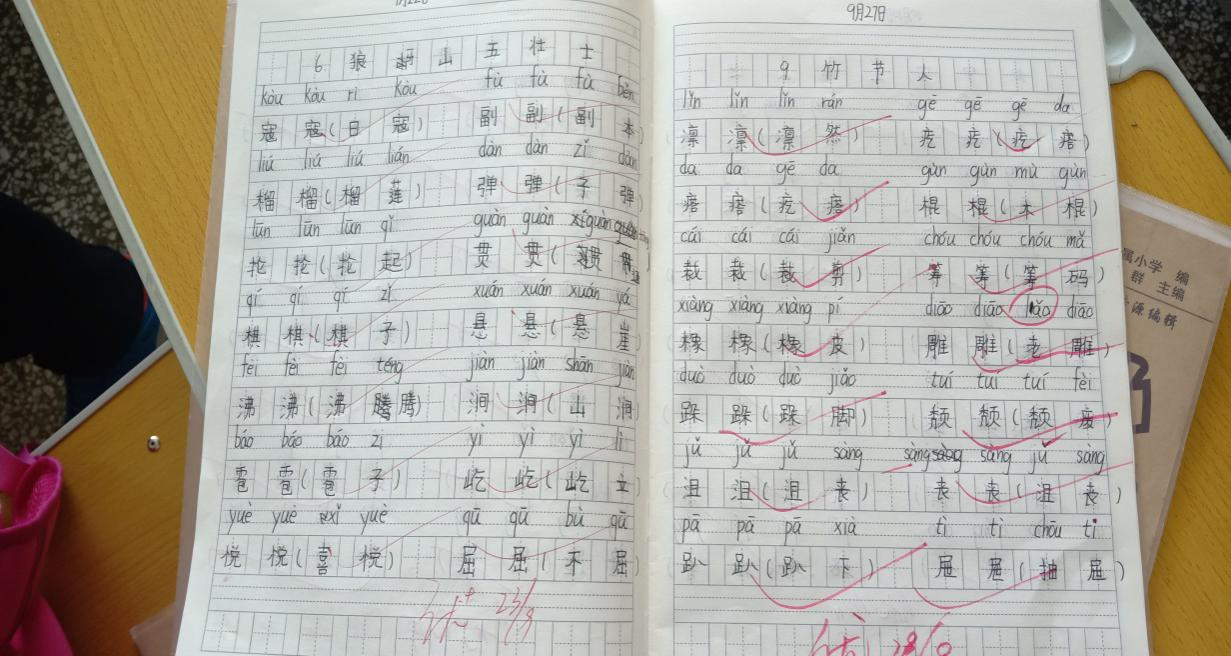 6. 狼牙山五壮士
kòu kòu rì kòu fù fù fù běn
寇 寇(日寇) 副 副(副本)
liú liú liú lián dàn dàn zǐ dàn
榴 榴(榴莲) 弹 弹(子弹)
lūn lūn lūn qǐ guàn guàn xí guàn
抡 抡(抡起) 贯 贯
qí qí qí zǐ xuán xuán xuán yá
棋 棋(棋子) 悬 悬(悬崖)
fèi fèi fèi téng jiàn jiàn shān jiàn
沸 沸(沸腾腾) 涧 涧(山涧)
báo báo báo zi yì yì yì lì
雹 雹(雹子) 屹 屹(屹立)
yuè yuè xǐ yuè qū qū bù qū
悦 悦(喜悦) 屈 屈(不屈)
23/9
9月27日
9. 竹节人
lǐn lǐn lǐn rán gē gē gē da
凛 凛(凛然) 疙 疙(疙瘩)
da da gē da gùn gùn mù gùn
瘩 瘩(疙瘩) 棍 棍(木棍)
cái cái cái jiǎn chóu chóu chóu mǎ
裁 裁(裁剪) 筹 筹(筹码)
xiàng xiàng xiàng pí diāo diāo lǎo diāo
橡 橡(橡皮) 雕 雕(老雕)
duò duò duò jiǎo tuí tuí tuí fèi
跺 跺(跺脚) 颓 颓(颓废)
jǔ jǔ jǔ sàng sàng sàng jǔ sàng
沮 沮(沮丧) 丧 丧(沮丧)
pā pā pā xià tì tì chōu tì
趴 趴(趴下) 屉 屉(抽屉)
属小学 编
群 主编
源编辑